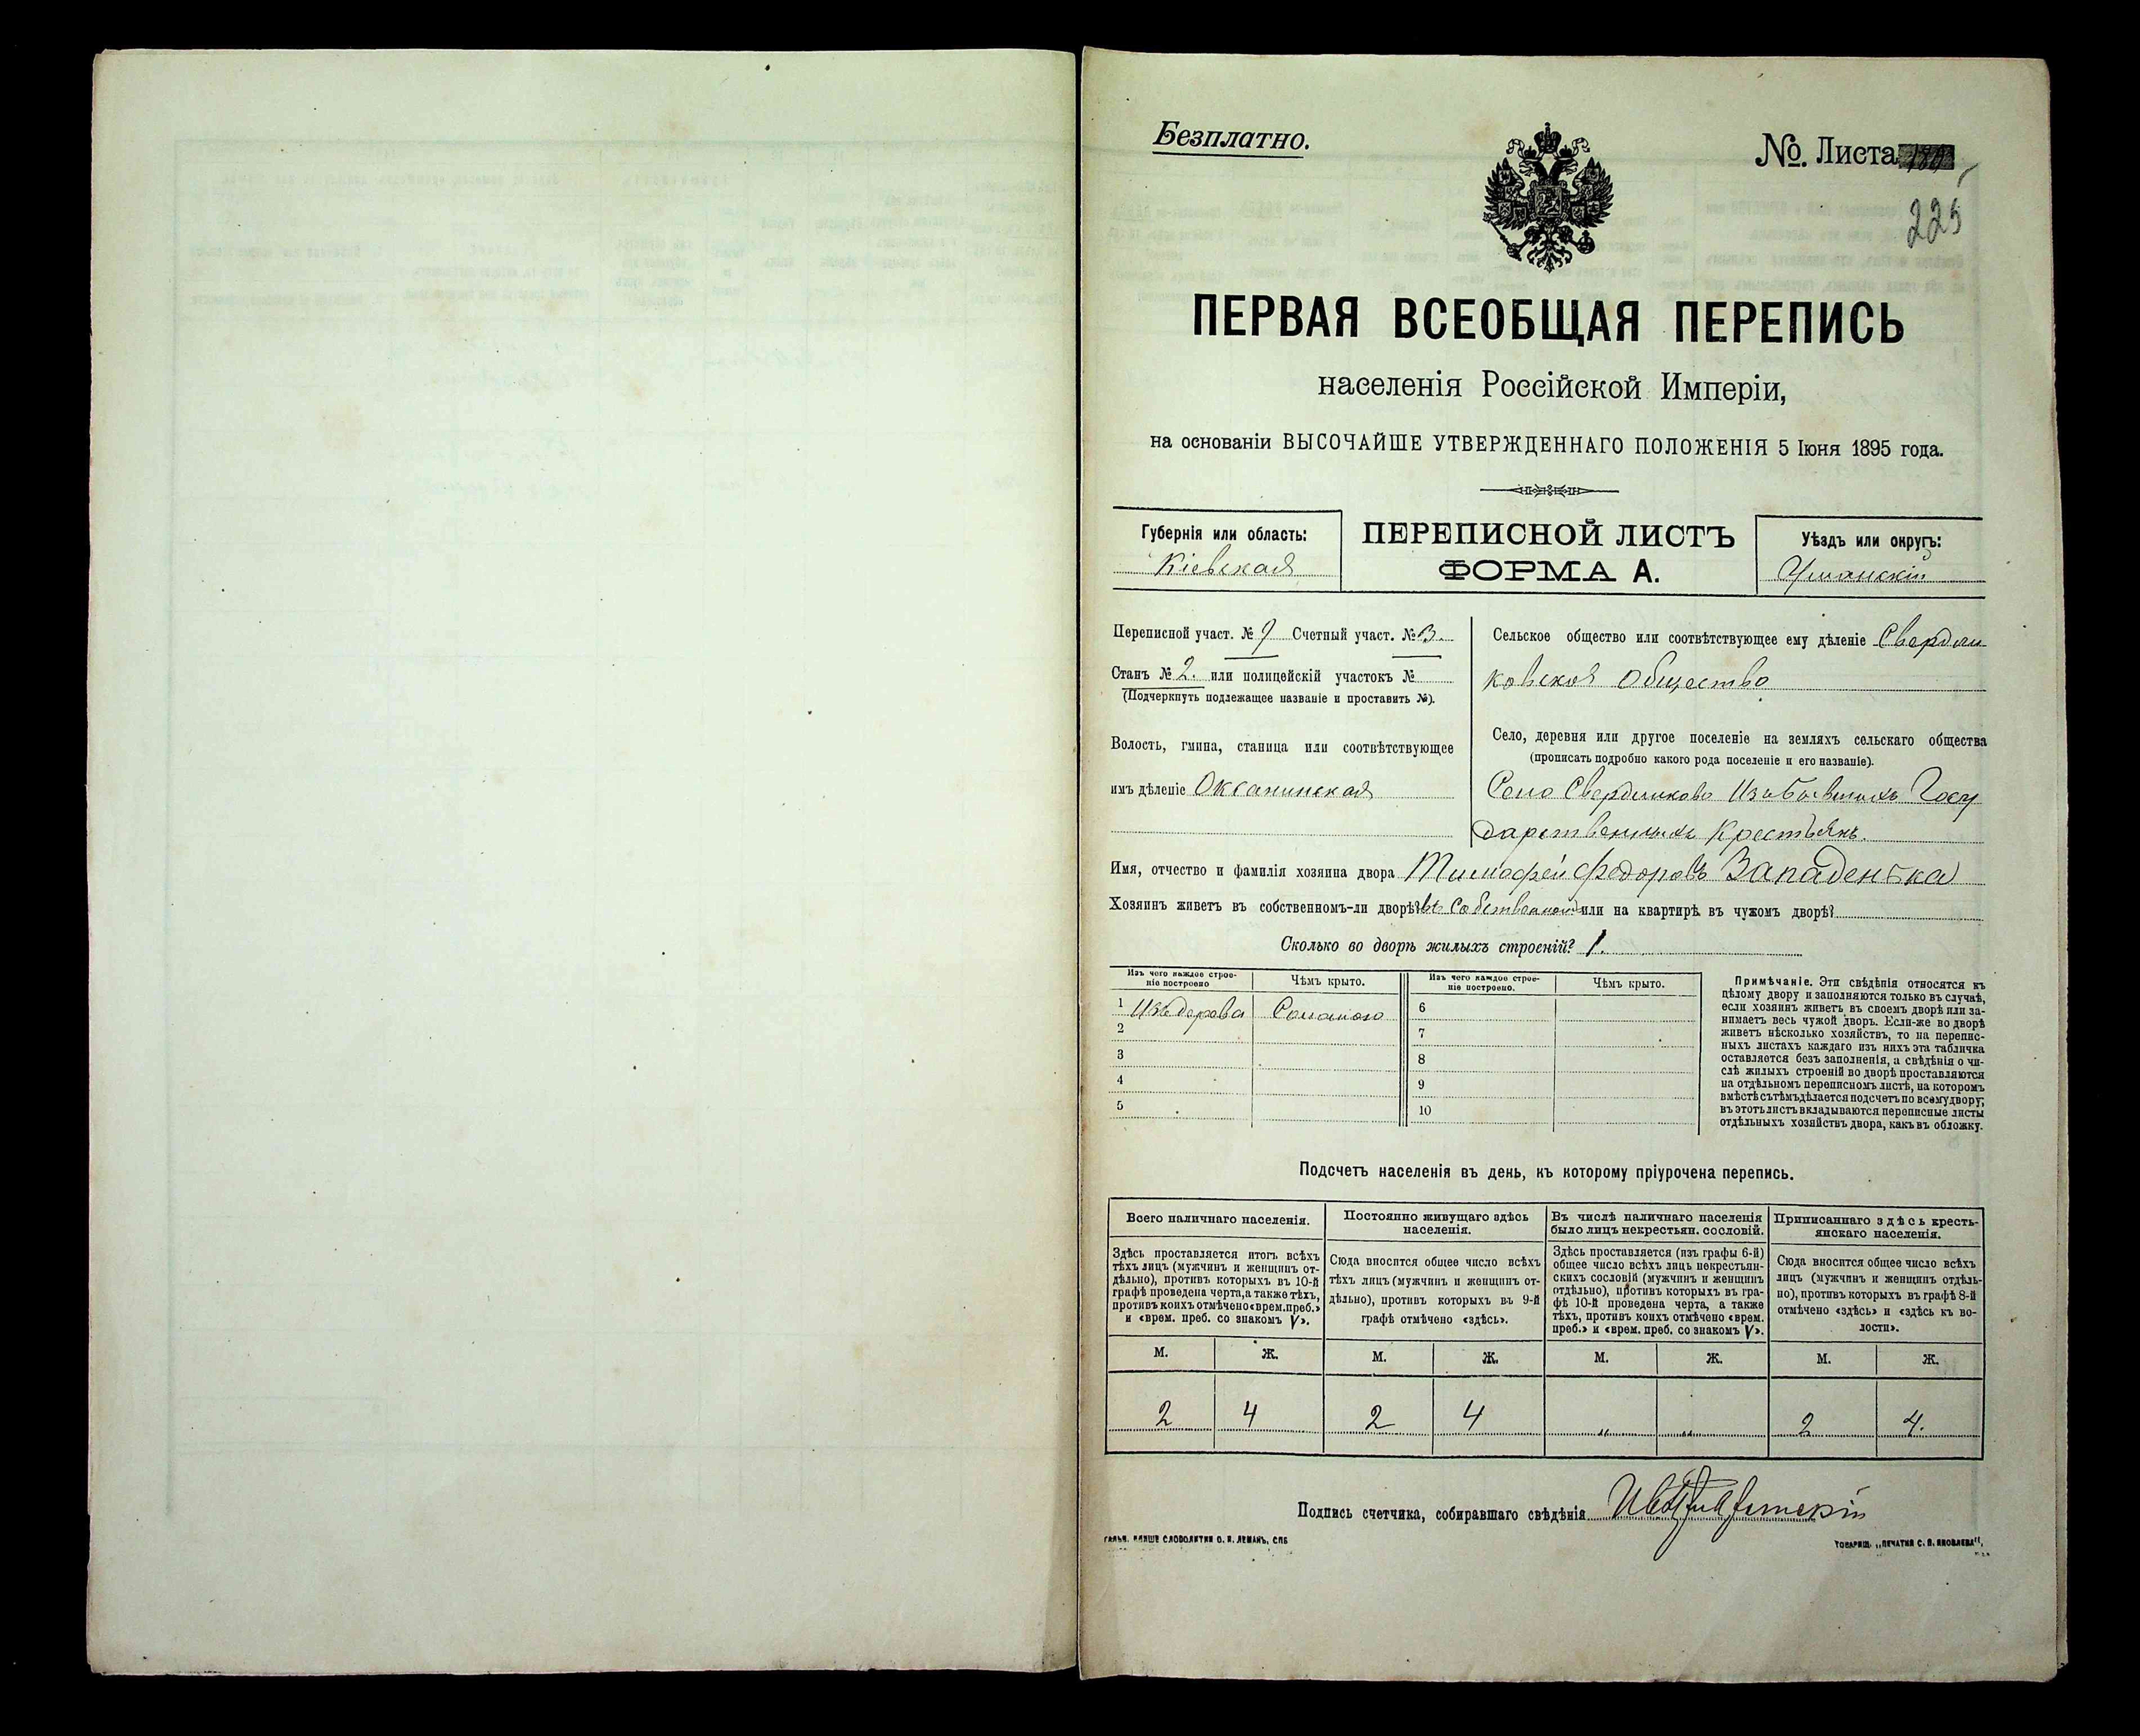 Безплатно.
№. Листа
225
ПЕРВАЯ ВСЕОБЩАЯ ПЕРЕПИСЬ
населенія Россійской Имперіи,
на основаніи ВЫСОЧАЙШЕ УТВЕРЖДЕННАГО ПОЛОЖЕНІЯ 5 Іюня 1895 года.
Губернія или область:
Кіевская
ПЕРЕПИСНОЙ ЛИСТЪ
ФОРМА А.
Уѣздъ или округъ:
Уманскій
Переписной участ. № Счетный участ. №
Станъ № 2. или полицейскій участокъ №
(Подчеркнуть подлежащее названіе и проставить №).
Волость, гмина, станица или соотвѣтствующее
имъ дѣленіе Оксанинская
Сельское общество или соотвѣтствующее ему дѣленіе Свердли
ковское Общество
Село, деревня или другое поселеніе на земляхъ сельскаго общества
(прописать подробно какого рода поселеніе и его названіе).
Село Свердликово Изъ бывшихъ Госу
дарственныхъ Крестьянъ.
Имя, отчество и фамилія хозяина двора Тимофей Федоровъ Западенька
Хозяинъ живетъ въ собственномъ-ли дворѣ? въ Собственном или на квартирѣ въ чужомъ дворѣ?
Сколько во дворѣ жилыхъ строеній? 1.
Изъ чего каждое строе-
ніе построено
Чѣмъ крыто.
Изъ чего каждое строе-
ніе построено.
Чѣмъ крыто.
1 Изъ дерева Соломою
2
3
4
5
6
7
8
9
10
Примѣчаніе. Эти свѣдѣнія относятся къ
цѣлому двору и заполняются только въ случаѣ,
если хозяинъ живетъ въ своемъ дворѣ или за-
нимаетъ весь чужой дворъ. Если-же во дворѣ
живетъ нѣсколько хозяйствъ, то на перепис-
ныхъ листахъ каждаго изъ нихъ эта табличка
оставляется безъ заполненія, а свѣдѣнія о чи-
слѣ жилыхъ строеній во дворѣ проставляются
на отдѣльномъ переписномъ листѣ, на которомъ
вмѣстѣ съ тѣмъ дѣлается подсчетъ по всему двору;
въ этотъ листъ вкладываются переписные листы
отдѣльныхъ хозяйствъ двора, какъ въ обложку.
Подсчетъ населенія въ день, къ которому пріурочена перепись.
Всего наличнаго населенія.
Здѣсь проставляется итогъ всѣхъ
тѣхъ лицъ (мужчинъ и женщинъ от-
дѣльно), противъ которыхъ въ 10-й
графѣ проведена черта, а также тѣхъ,
противъ коихъ отмѣчено «врем. преб.»
и «врем. преб. со знакомъ V».
Постоянно живущаго здѣсь
населенія.
Сюда вносится общее число всѣхъ
тѣхъ лицъ (мужчинъ и женщинъ от-
дѣльно), противъ которыхъ въ 9-й
графѣ отмѣчено «здѣсь».
Въ числѣ наличнаго населенія
было лицъ некрестьян. сословій.
Здѣсь проставляется (изъ графы 6-й)
общее число всѣхъ лицъ некрестьян-
скихъ сословій (мужчинъ и женщинъ
отдѣльно), противъ которыхъ въ гра-
фѣ 10-й проведена черта, а также
тѣхъ, противъ коихъ отмѣчено «врем.
преб.» и «врем. преб. со знакомъ V».
Приписаннаго здѣсь кресть-
янскаго населенія.
Сюда вносится общее число всѣхъ
лицъ (мужчинъ и женщинъ отдѣль-
но), противъ которыхъ въ графѣ 8-й
отмѣчено «здѣсь» и «здѣсь къ во-
лости».
М. Ж. М. Ж. М. Ж. М. Ж.
2 4 2 4 „ „ 2 4.
Подпись счетчика, собиравшаго свѣдѣнія
ГАЛЬВ. КЛИШЕ СЛОВОЛИТНИ О. И. ЛЕМАНЪ, СПБ
ТОВАРИЩ. „ПЕЧАТНЯ С. П. ЯКОВЛЕВА".